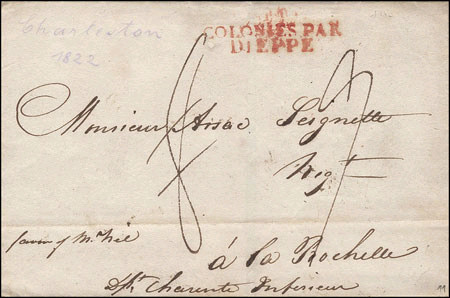 Charleston
1822
COLONIES PAR
DIEPPE
Monsieur Isaac Seignette
Negt
favor of Mr
à la Rochelle
Dpt. Charente Inférieur